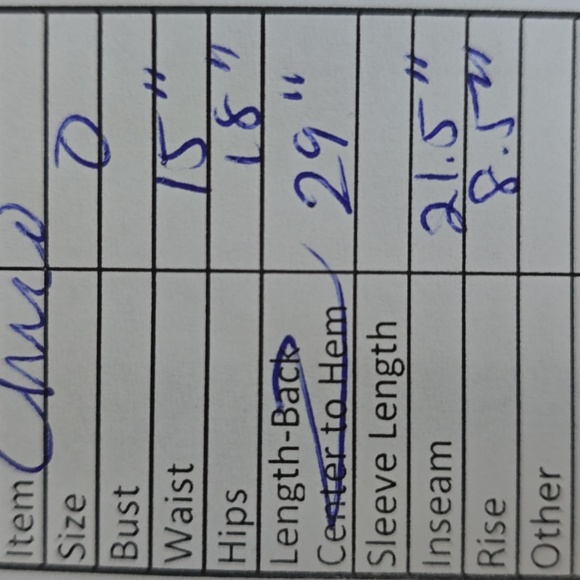 Item
Size 0
Bust
Waist 15"
Hips 18"
Length-Back
Center to Hem 29"
Sleeve Length
Inseam 21.5"
Rise 8.5"
Other